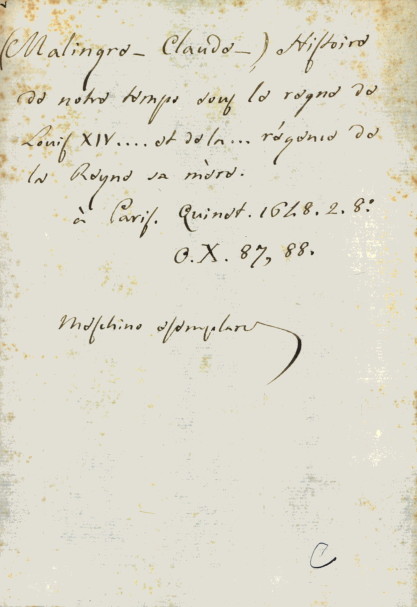 (Malingre - Claude -) Histoire
de notre temps sous le regne de
Louis XIV.... et de la... régence de
la Reyne sa mère.
à Paris. Quinet. 1648. 2. 8.º
O. X. 87, 88.
Meschino esemplare
C